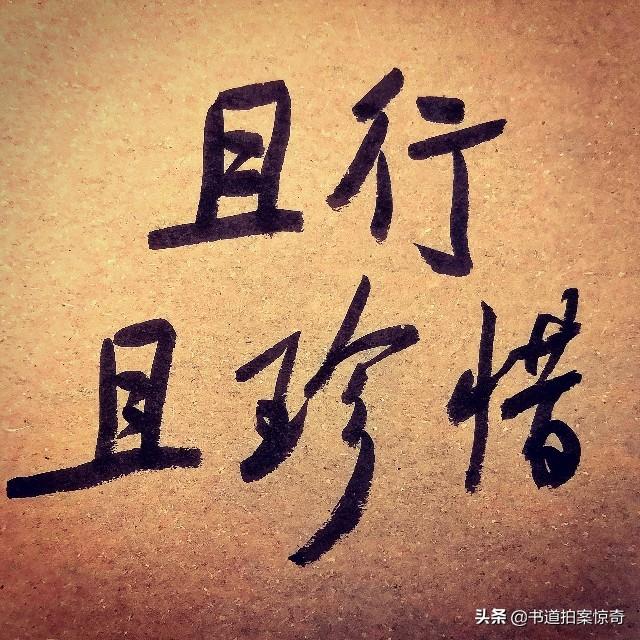 且行
且珍惜
头条 @书道拍案惊奇